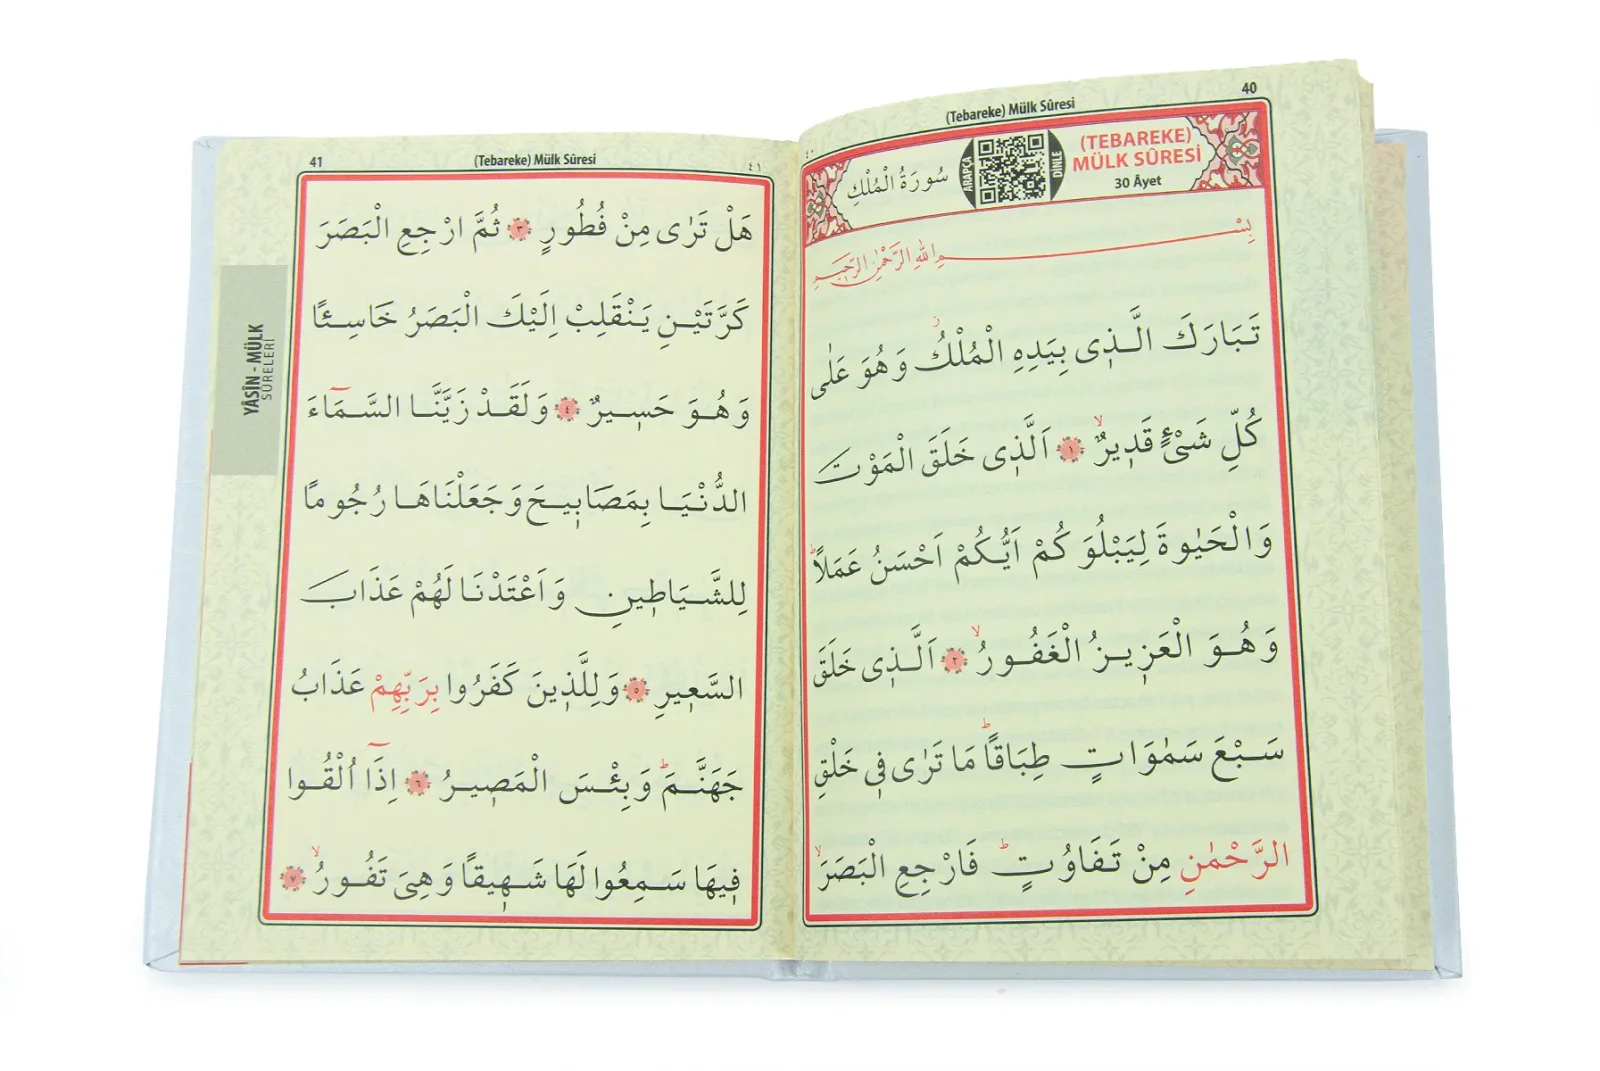 40
(Tebareke) Mülk Sûresi
٤٠
(TEBAREKE)
MÜLK SÛRESİ
30 Âyet
DİNLE
ARAPÇA
سُورَةُ الْمُلْكِ
بِسْمِ اللهِ الرَّحْمٰنِ الرَّحِيمِ
تَبَارَكَ الَّذ۪ى بِيَدِهِ الْمُلْكُۘ وَهُوَ عَلٰى
كُلِّ شَىْءٍ قَد۪يرٌۙ ﴿١﴾ اَلَّذ۪ى خَلَقَ الْمَوْتَ
وَالْحَيٰوةَ لِيَبْلُوَكُمْ اَيُّكُمْ اَحْسَنُ عَمَلاًۜ
وَهُوَ الْعَز۪يزُ الْغَفُورُۙ ﴿٢﴾ اَلَّذ۪ى خَلَقَ
سَبْعَ سَمٰوَاتٍ طِبَاقًاۜ مَا تَرٰى ف۪ى خَلْقِ
الرَّحْمٰنِ مِنْ تَفَاوُتٍۜ فَارْجِعِ الْبَصَرَۙ
41
(Tebareke) Mülk Sûresi
٤١
هَلْ تَرٰى مِنْ فُطُورٍ ﴿٣﴾ ثُمَّ ارْجِعِ الْبَصَرَ
كَرَّتَيْنِ يَنْقَلِبْ اِلَيْكَ الْبَصَرُ خَاسِئًا
وَهُوَ حَس۪يرٌ ﴿٤﴾ وَلَقَدْ زَيَّنَّا السَّمَٓاءَ
الدُّنْيَا بِمَصَاب۪يحَ وَجَعَلْنَاهَا رُجُومًا
لِلشَّيَاط۪ينِ وَاَعْتَدْنَا لَهُمْ عَذَابَ
السَّع۪يرِ ﴿٥﴾ وَلِلَّذ۪ينَ كَفَرُوا بِرَبِّهِمْ عَذَابُ
جَهَنَّمَۜ وَبِئْسَ الْمَص۪يرُ ﴿٦﴾ اِذَٓا اُلْقُوا
ف۪يهَا سَمِعُوا لَهَا شَه۪يقًا وَهِىَ تَفُورُۙ ﴿٧﴾
YÂSÎN - MÜLK
SÛRELERİ